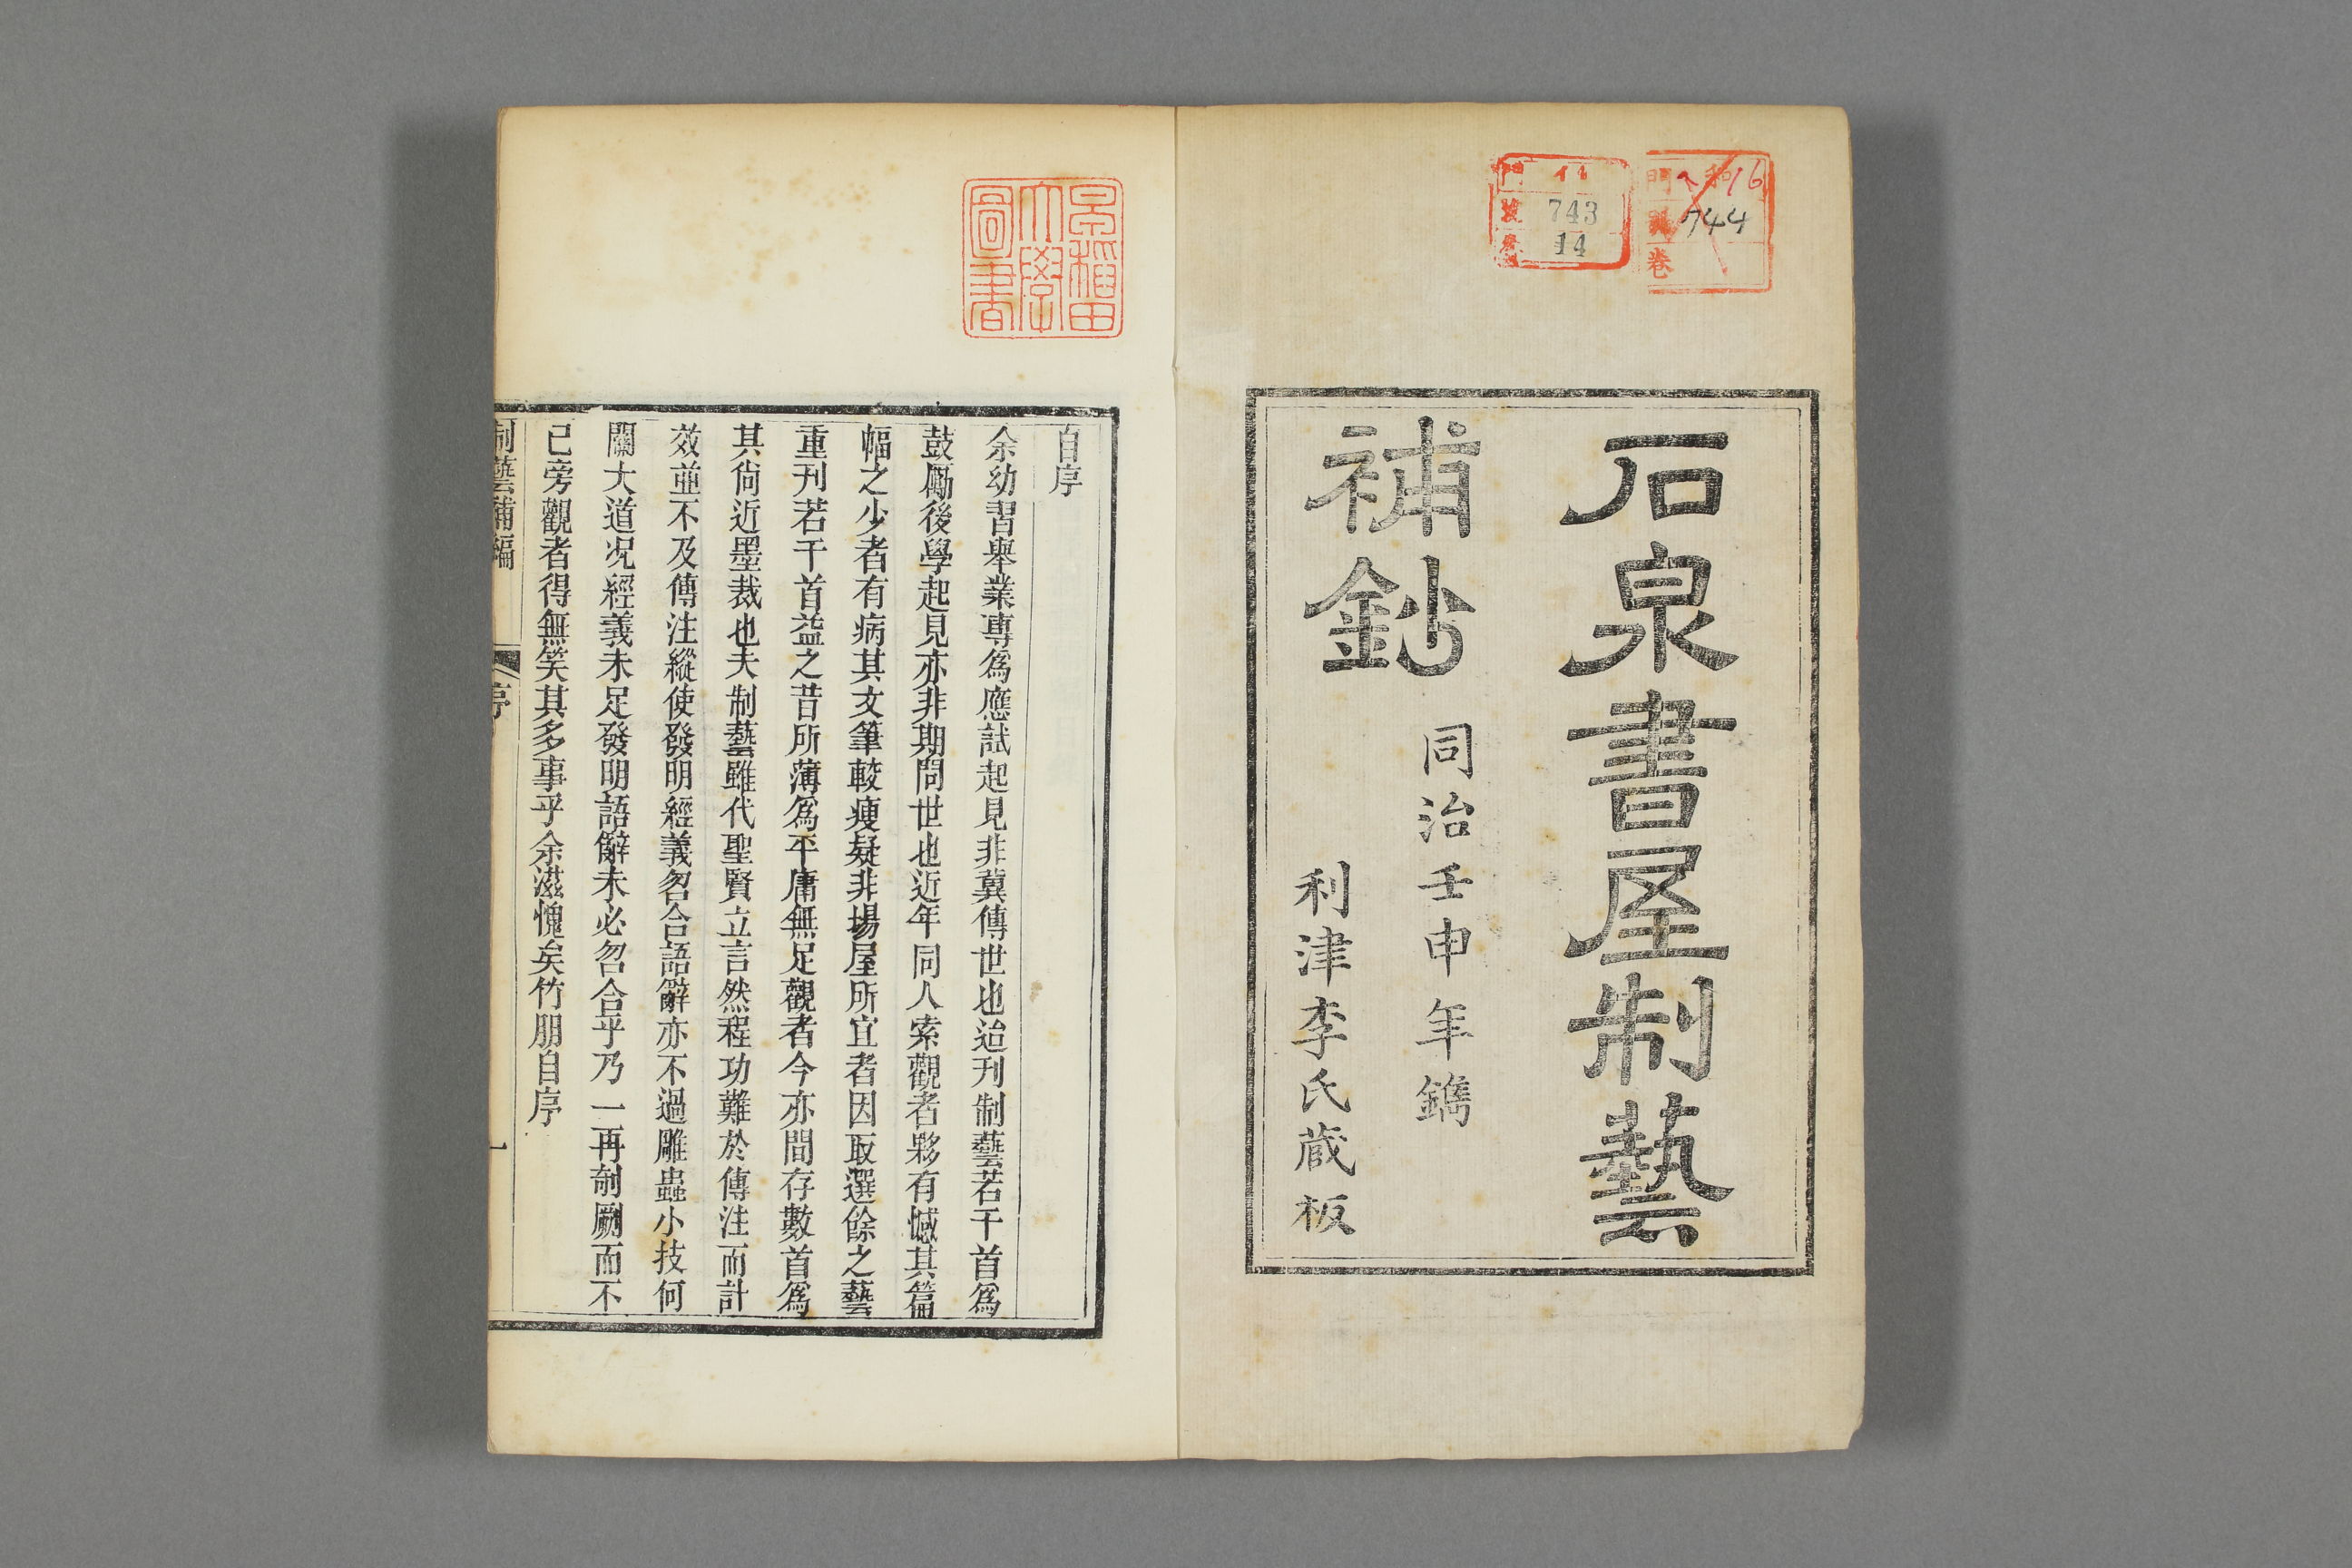 石泉書屋制藝
補鈔
同治壬申年鐫
利津李氏蔵板
門
743
14
門 16
744
卷
早稲田
大學
圖書
自序
余幼習舉業專爲應試起見非冀傳世也迨刊制藝若干首爲
鼓勵後學起見亦非期問世也近年同人索觀者夥有憾其篇
幅之少者有病其文筆較瘦疑非場屋所宜者因取選餘之藝
重刊若干首益之昔所薄爲平庸無足觀者今亦間存數首爲
其尙近墨裁也夫制藝雖代聖賢立言然程功難於傳注而計
效並不及傳注縱使發明經義曶合語辭亦不過雕蟲小技何
關大道况經義未足發明語辭未必曶合乎乃一再剞劂而不
已旁觀者得無笑其多事乎余滋愧矣竹朋自序
制藝補編
序
一